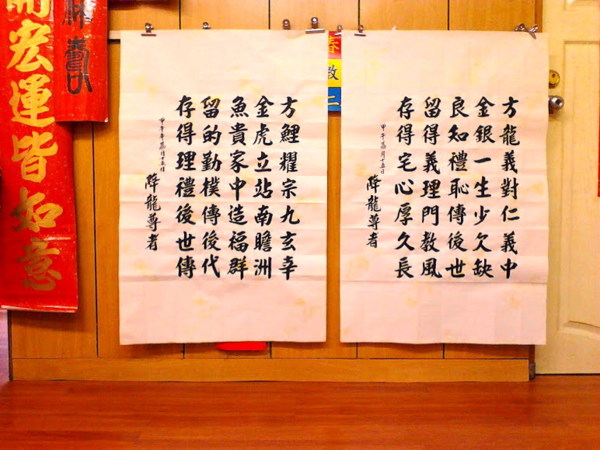 方龍義對仁義中
金銀一生少欠缺
良知禮恥傳後世
留得義理門教風
存得宅心厚久長
甲午年月十五日
降龍尊者
教
二
方鯉耀宗九玄幸
金虎立站南瞻洲
魚貴家中造福群
留的勤樸傳後代
存得理禮後世傳
甲午年月十五日
降龍尊者
宏運皆如意